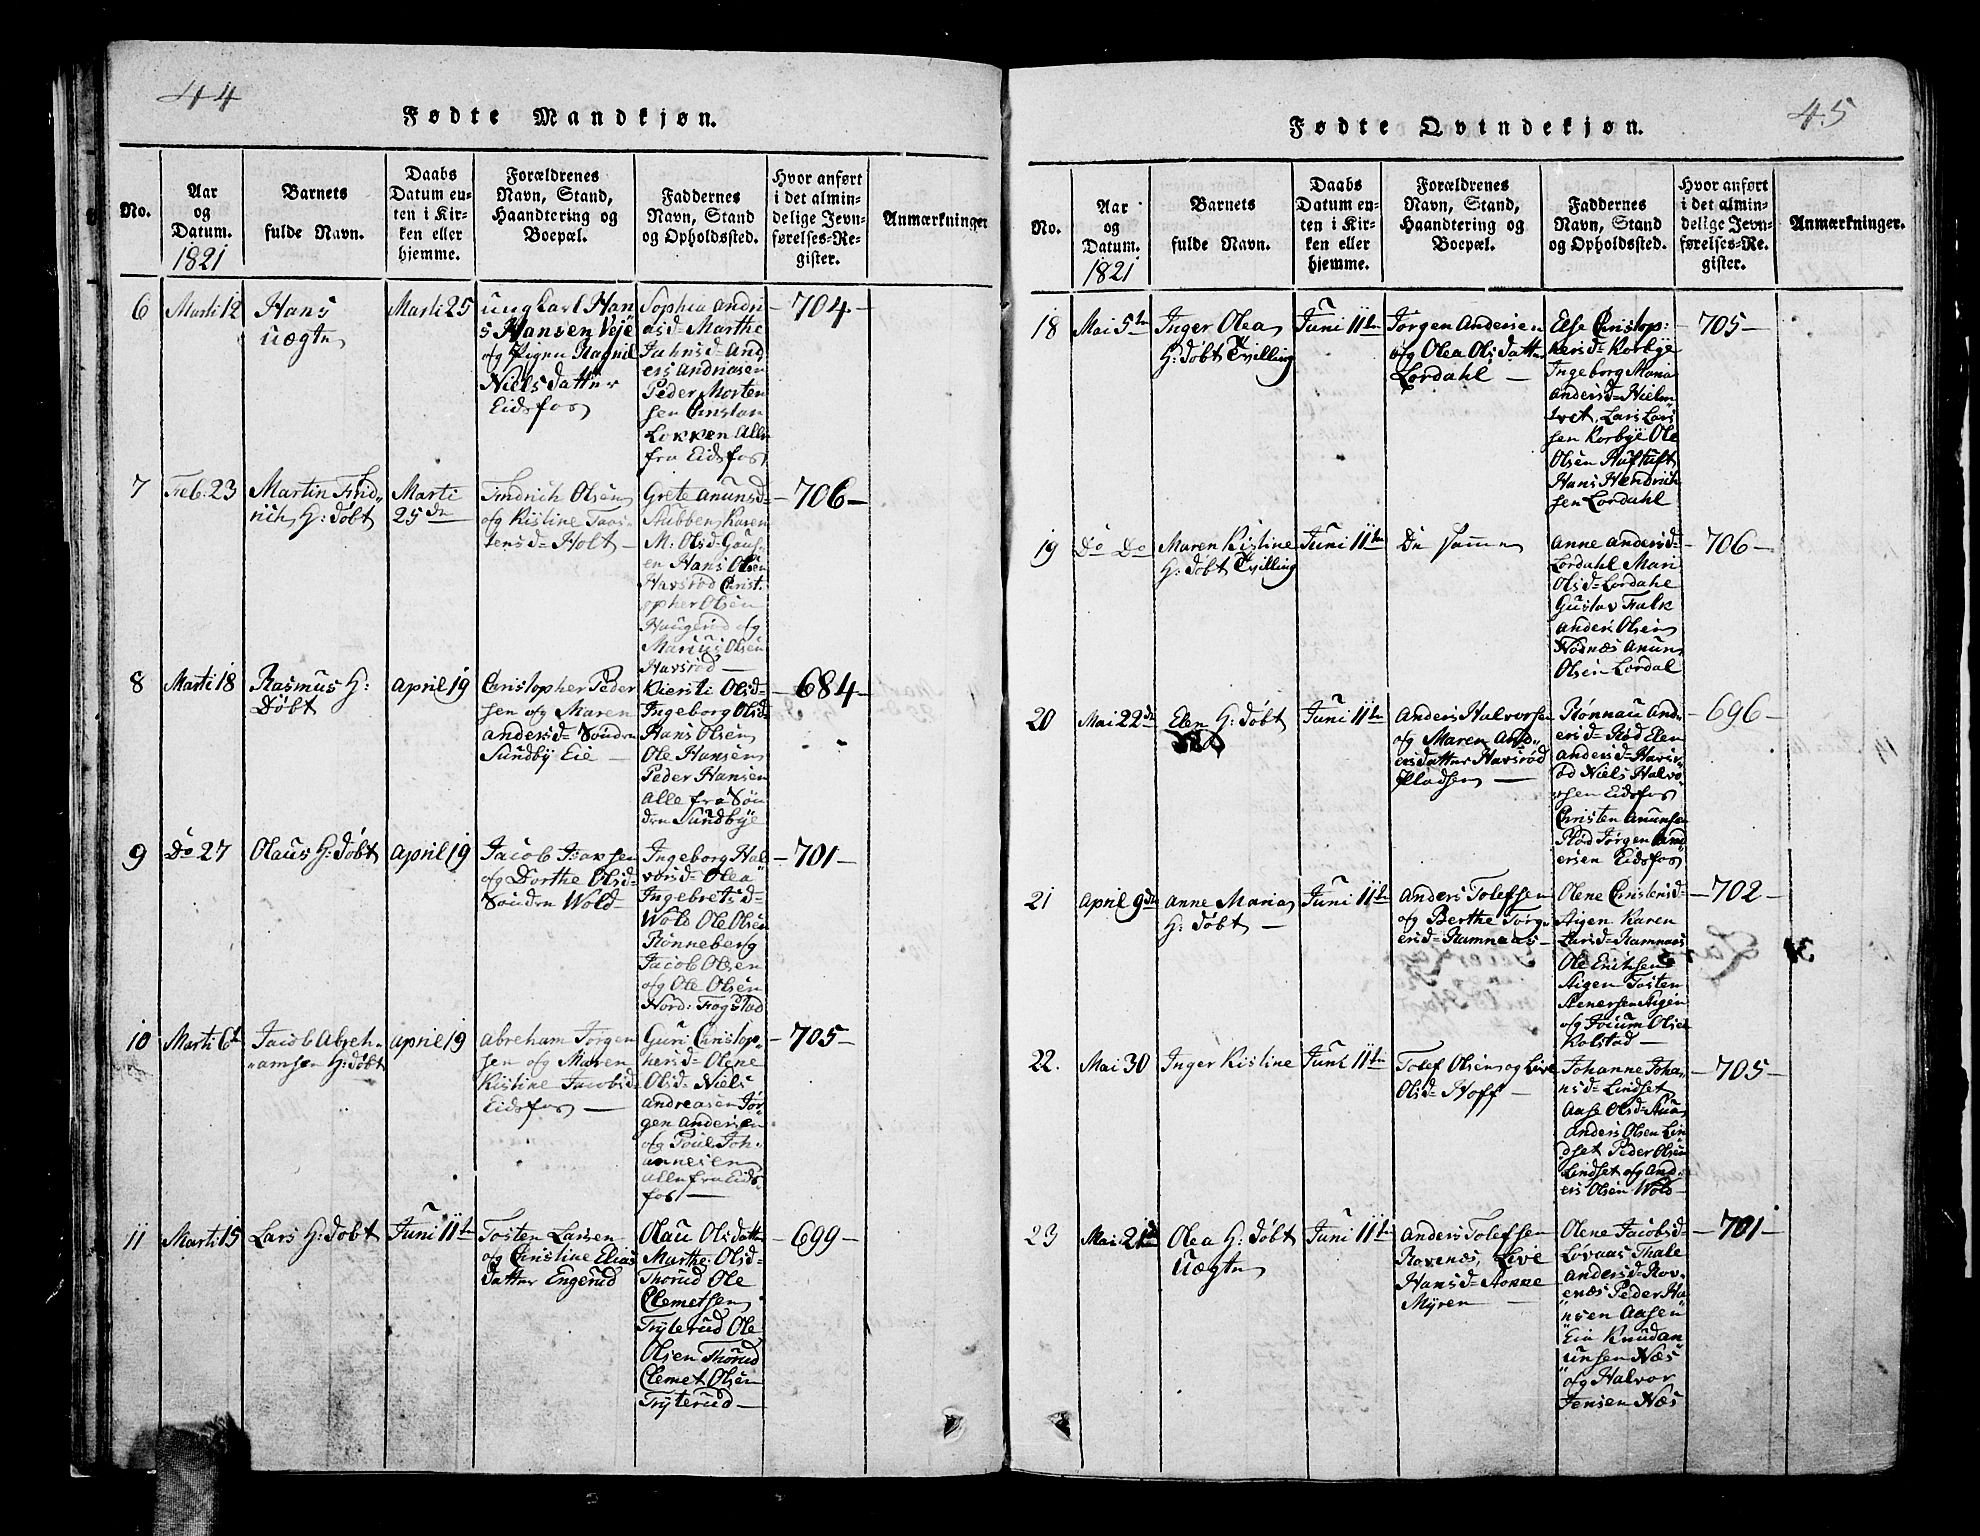 44
Fødte Mandkjøn.
No.
Aar
og
Datum.
1821
Barnets
fulde Navn.
Daabs
Datum en-
ten i Kir-
ken eller
hjemme.
Forældrenes
Navn, Stand,
Haandtering og
Boepæl.
Faddernes
Navn, Stand
og Opholdssted.
Hvor anført
i det almin-
delige Jevn-
førelses-Re-
gister.
Anmærkninger
6
Marti 12
Hans
uægte
Marti 25
ungkarl Han
s Hansen Veje
og Pigen Ragnil
Niels datter
Eidsfos
Sophia Andri
asd= Marthe
Jahnsd= And
ers Andriasen
Peder Morten
sen Christan
Løkken Alle
fra Eidsfos
-704-
7
Feb. 23
Martin Frid„
rich H: døbt
Marti
25de
Fredrich Olsen
og Kistine Taas„
tensd= Holt -
Grete Anunsd=
Stubben Karen
M: Olsd=
en Hans Olsen
Havsrød Christ:
opher Olsen
Haugerød og
Marius Olsen
Havsrød -
-706-
8
Marti 18
Rasmus H:
Døbt
April 19
Christopher Peder
sen og Maren
Andersd= Sønden
Sundby Eie -
Kiersti Olsd=
Ingeborg Olsd=
Hans Olsen
Ole Hansen
Peder Hansen
alle fra Søn
dre Sundbye
-684-
9
Do 27
Olaus H: døbt
April 19
Jacob Ivarsen
og Dorthe Olsd=
Sønden Wold-
Ingeborg Hal
vorsd= Olea
Ingebretsd=
Wold Ole Olsen
Rønneberg
Jacob Olsen
og Ole Olsen
Nord: Fogstad
-701-
10
Marti 6t
Jacob Abreh„
„amsen H: døbt
April 19
Abreham Jørgen
sen og Maren
Kistine Jacobsd=
Eidsfos -
Guri Christop„
hersd= Olene
Olsd= Niels
Andreasen Jør„
gen Andersen
og Poul Joh„
annesen
alle fra Eids„
fos -
-705-
11
Marti 15
Lars H: døbt
Juni 11te
Tosten Larsen
og Christine Elias
datter Engerud
Olau Olsdatter
Marthe Olsd=
Thorud Ole
Clemetsen
Tryterud Ole
Olsen Thorud
Clemet Olsen
Tryterud -
-699-
45
Fødte Qvindekjøn.
No.
Aar
og
Datum.
1821
Barnets
fulde Navn.
Daabs
Datum en-
ten i Kir-
ken eller
hjemme.
Forældrenes
Navn, Stand,
Haandtering og
Boepæl.
Faddernes
Navn, Stand
og Opholdssted.
Hvor anført
i det almin-
delige Jevn-
førelses-Re-
gister.
Anmærkninger.
18
Mai 5te
Inger Olea
H: døbt Tvilling
Juni 11te
Jørgen Andersen
og Olea Olsdatter
Lørdahl -
Else Christop:
hersd= Korbye
Ingeborg Maria
Andersd= Hielm
tvet, Lars Lars
sen Korbye Ole
Olsen Huftuft
Hans Hendrich
sen Lørdahl
-705-
19
Do Do
Maren Kistine
H: døbt Tvilling
Juni 11te
De samme
Anne Andersd=
Lørdahl Mari
Olsd= Lørdahl
Gustav Falk
Anders Olsen
Hodnæs Anun
Olsen Lørdal
-706-
20
Mai 22de
Elen H: døbt
Juni 11te
Anders Halvorsen
og Maren And„
ersdatter Havsrød
Pladsen -
Rønnau And„
ersd= Rød Elen
Andersd= Havsr„
ød Niels Halvo
rsen Eidsfos
Christen Anunsen
Rød Jørgen And
ersen Eidsfos
-696-
21
April 9de
Anne Maria
H: døbt -
Juni 11te
Anders Tolefsen
og Berthe Jørg„
ersd= Ramnæs-
Olene Christensd=
Aigen Karen
Larsd= Ramnæs
Ole Erichsen
Aigen Tosten
Stenersen Aigen
og Joium Olsen
Kolstad -
-702-
22.
Mai 30
Inger Kistine
Juni 11te
Tolef Olsen og Live
Olsd= Hoff -
Johanne Joha„
nsd= Lindset
Aase Olsd=
Anders Olsen Lin
dset Peder Olsen
Lindset og And„
ers Olsen Wold-
-705-
23
Mai 21de
Olea H: døbt
Uægte
Juni 11te
Anders Tolefsen
Rovenæs, Live
Hansd= Stokke
Myren -
Olene Jacobsd=
Løvaas Thale
Andersd= Rov„
enæs Peder Ha
nsen Aasen
Eie Knud An
unsen Næs
og Halvor
Jensen Næs
-701-